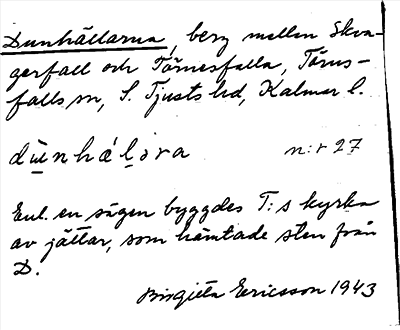 Dunhällarna, berg mellan Skva-
gerfall och Törnesfalla, Törns-
falls sn, S. Tjusts hd, Kalmar l.
dùnhálɔra n:r 27
Enl. en sägen byggdes T:s kyrka
av jättar, som hämtade sten från
D.
Birgitta Ericsson 1943